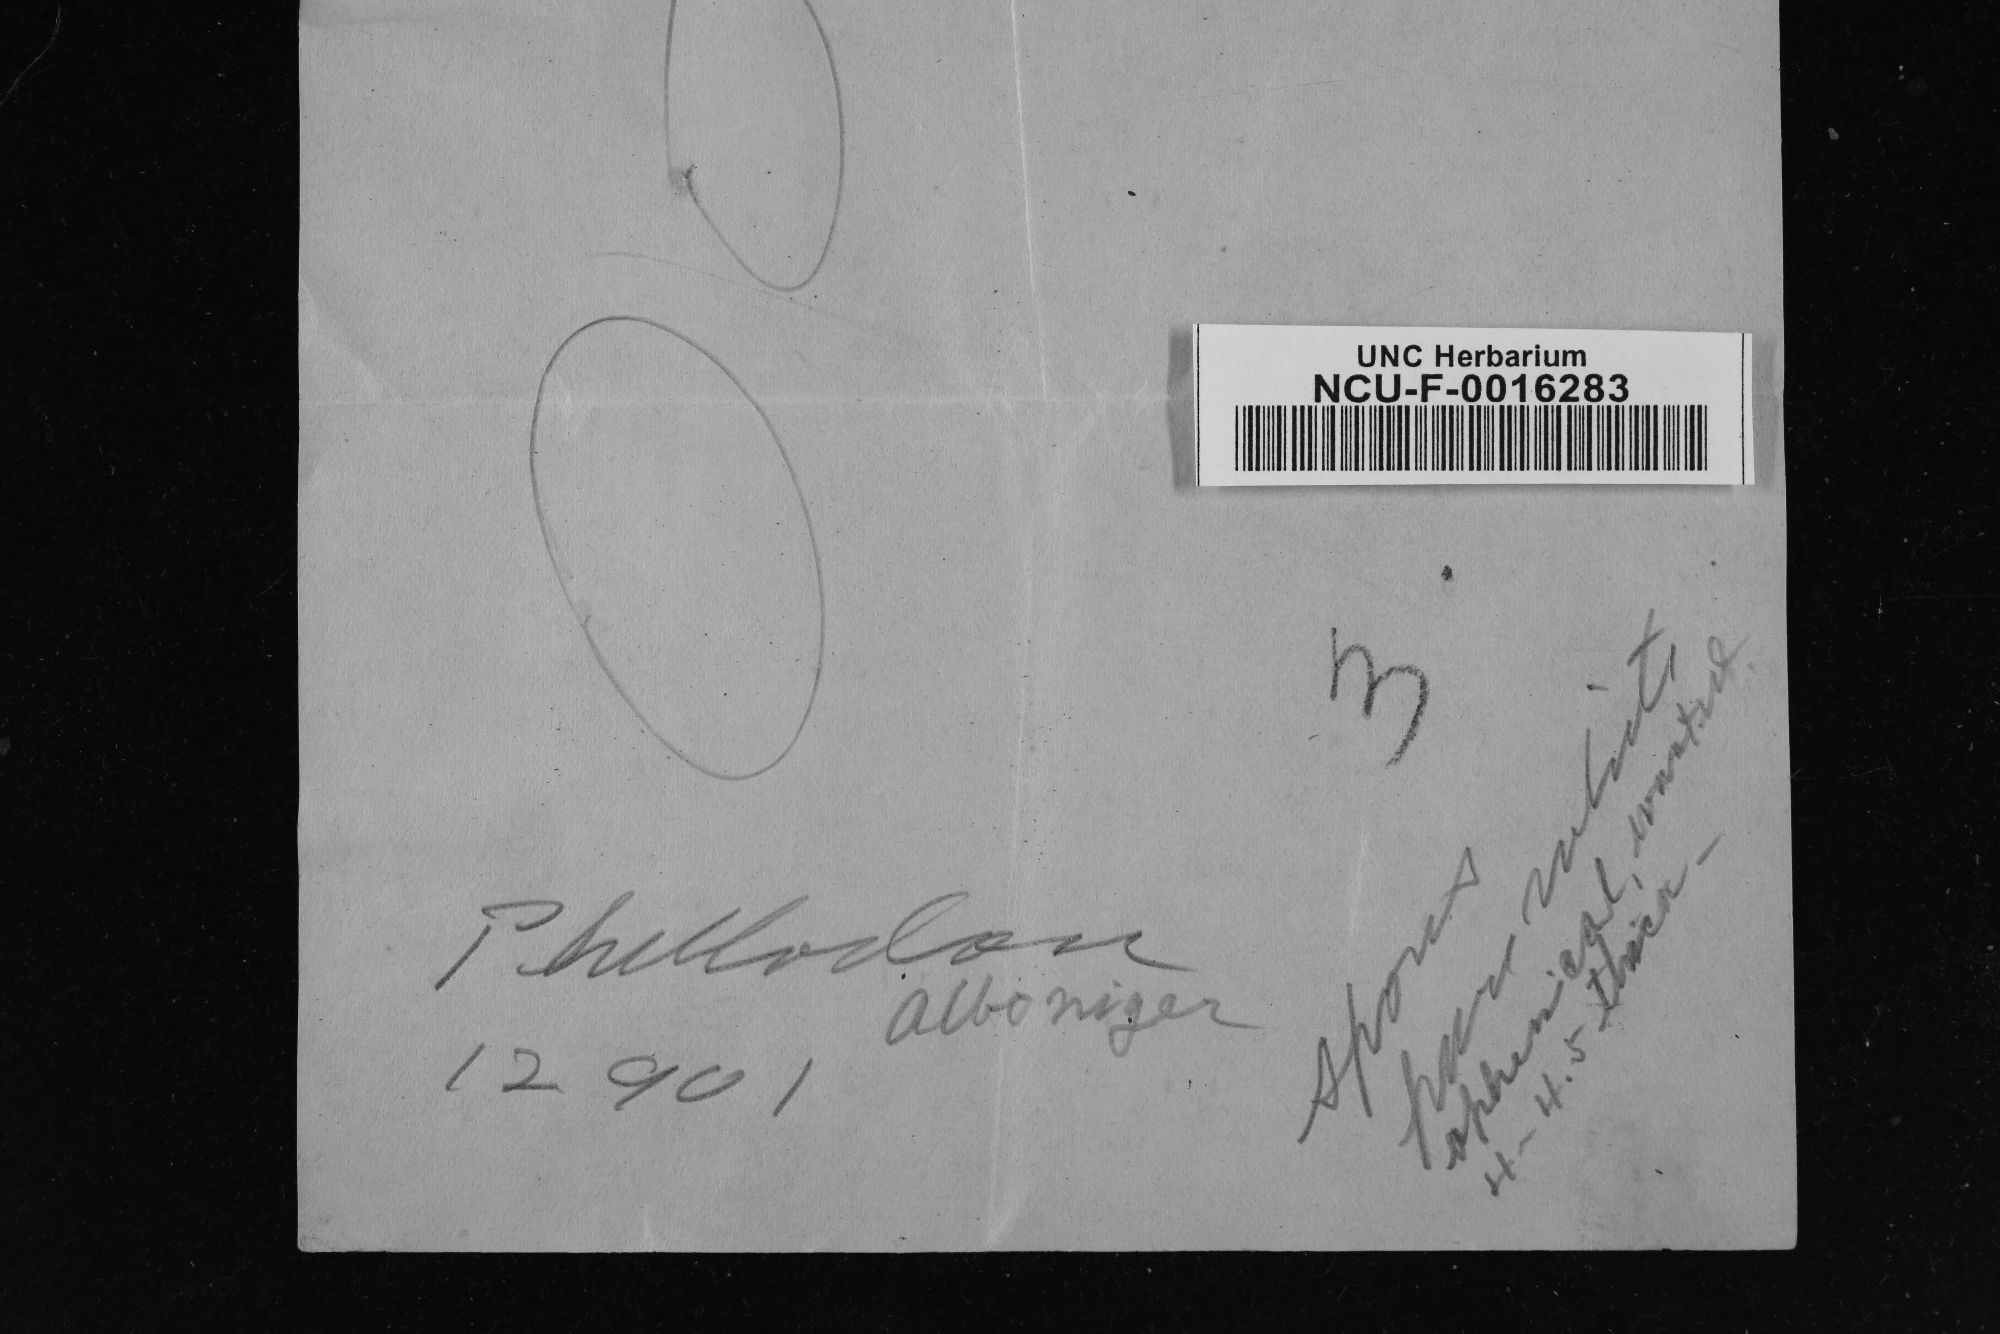 UNC Herbarium
NCU-F-0016283
3
Phellodon
alboniger
12901
spores
pure white,
spherical, warted.
4-4.5 thick-